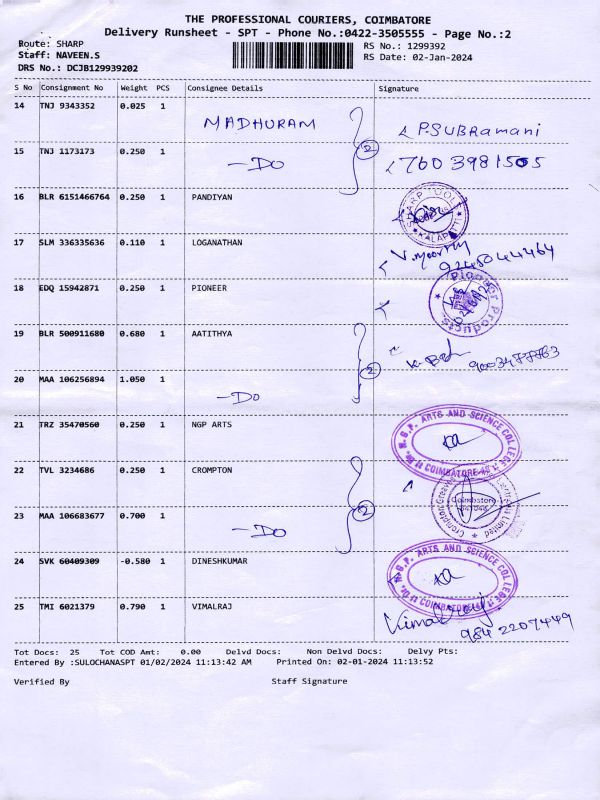 THE PROFESSIONAL COURIERS, COIMBATORE
Delivery Runsheet - SPT - Phone No.:0422-3505555 - Page No.:2
Route: SHARP RS No.: 1299392
Staff: NAVEEN.S RS Date: 02-Jan-2024
DRS No.: DCJB129939202
S No Consignment No Weight PCS Consignee Details Signature
14 TNJ 9343352 0.025 1 MADHURAM P.SUBRamani
15 TNJ 1173173 0.250 1 -DO 2 7603981505
16 BLR 6151466764 0.250 1 PANDIYAN SHARP TOOLS KALAPATTI
17 SLM 336335636 0.110 1 LOGANATHAN V.Moorthy
9245044464
18 EDQ 15942871 0.250 1 PIONEER Pioneer Products
19 BLR 500911680 0.680 1 AATITHYA 9003477763
20 MAA 106256894 1.050 1 -DO 2
21 TRZ 35470560 0.250 1 NGP ARTS Dr. N.G.P. ARTS AND SCIENCE COLLEGE COIMBATORE
22 TVL 3234686 0.250 1 CROMPTON Crompton Greaves Limited Coimbatore
23 MAA 106683677 0.700 1 -DO 2
24 SVK 60409309 -0.580 1 DINESHKUMAR Dr. N.G.P. ARTS AND SCIENCE COLLEGE COIMBATORE
25 TMI 6021379 0.790 1 VIMALRAJ Vimalraj
9842207449
Tot Docs: 25 Tot COD Amt: 0.00 Delvd Docs: Non Delvd Docs: Delvy Pts:
Entered By :SULOCHANASPT 01/02/2024 11:13:42 AM Printed On: 02-01-2024 11:13:52
Verified By Staff Signature